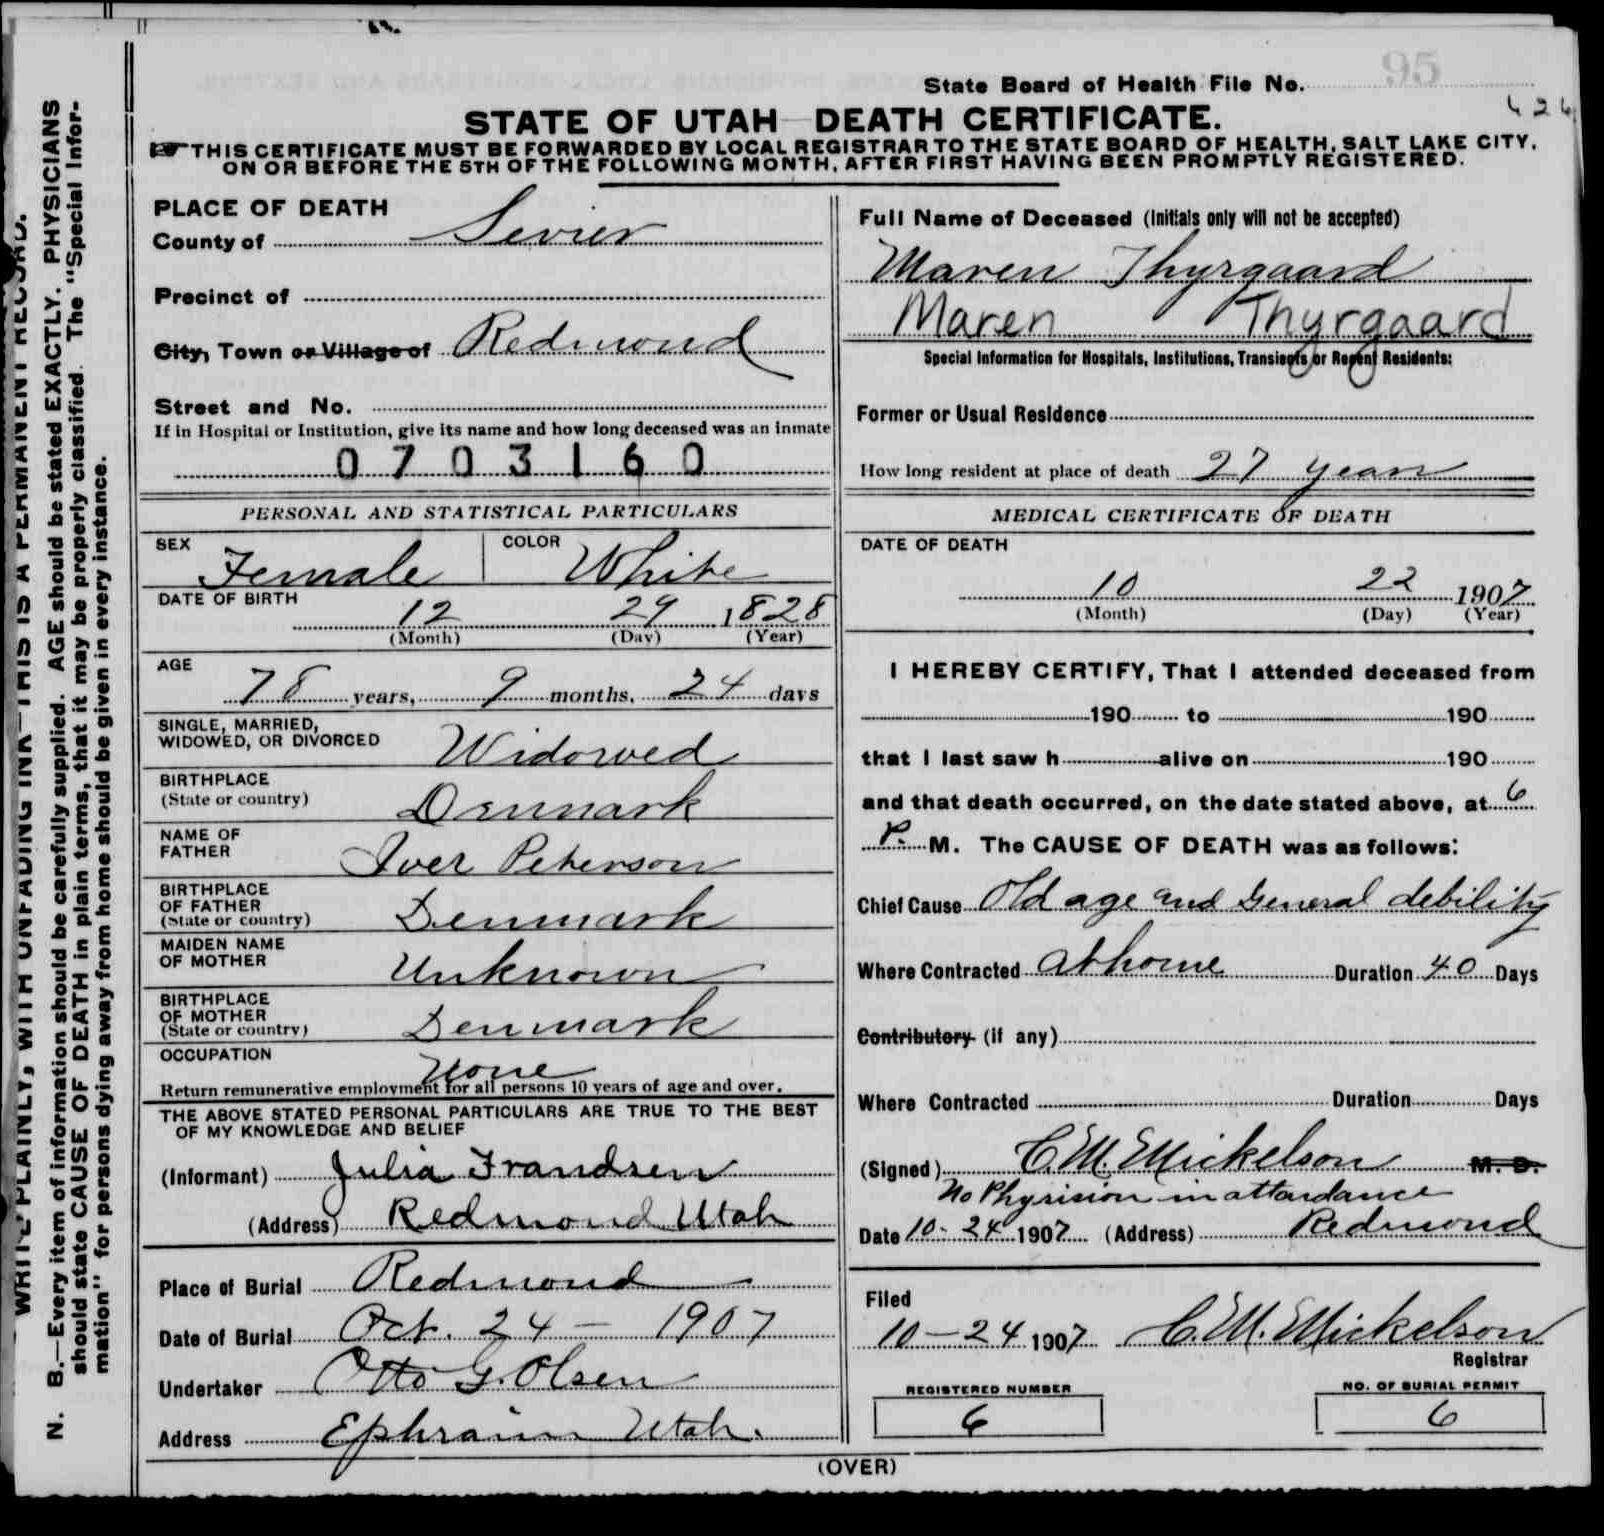 WRITE PLAINLY, WITH UNFADING INK—THIS IS A PERMANENT RECORD.
N. B.—Every item of information should be carefully supplied. AGE should be stated EXACTLY. PHYSICIANS
should state CAUSE OF DEATH in plain terms, that it may be properly classified. The "Special Infor-
mation" for persons dying away from home should be given in every instance.
95
State Board of Health File No.
STATE OF UTAH—DEATH CERTIFICATE.
THIS CERTIFICATE MUST BE FORWARDED BY LOCAL REGISTRAR TO THE STATE BOARD OF HEALTH, SALT LAKE CITY,
ON OR BEFORE THE 5TH OF THE FOLLOWING MONTH, AFTER FIRST HAVING BEEN PROMPTLY REGISTERED.
PLACE OF DEATH
County of Sevier
Precinct of
City, Town or Village of Redmond
Street and No.
If in Hospital or Institution, give its name and how long deceased was an inmate
0703160
PERSONAL AND STATISTICAL PARTICULARS
SEX Female COLOR White
DATE OF BIRTH
12 29 1828
(Month) (Day) (Year)
AGE
78 years, 9 months, 24 days
SINGLE, MARRIED,
WIDOWED, OR DIVORCED Widowed
BIRTHPLACE
(State or country) Denmark
NAME OF
FATHER Iver Peterson
BIRTHPLACE
OF FATHER
(State or country) Denmark
MAIDEN NAME
OF MOTHER Unknown
BIRTHPLACE
OF MOTHER
(State or country) Denmark
OCCUPATION None
Return remunerative employment for all persons 10 years of age and over.
THE ABOVE STATED PERSONAL PARTICULARS ARE TRUE TO THE BEST
OF MY KNOWLEDGE AND BELIEF
(Informant) Julia Frandsen
(Address) Redmond Utah
Place of Burial Redmond
Date of Burial Oct. 24 – 1907
Undertaker Otto G. Olsen
Address Ephraim Utah.
Full Name of Deceased (Initials only will not be accepted)
Maren Thyrgaard
Maren Thyrgaard
Special Information for Hospitals, Institutions, Transients or Recent Residents:
Former or Usual Residence
How long resident at place of death 27 years
MEDICAL CERTIFICATE OF DEATH
DATE OF DEATH
10 22 1907
(Month) (Day) (Year)
I HEREBY CERTIFY, That I attended deceased from
190 to 190
that I last saw h alive on 190
and that death occurred, on the date stated above, at 6
P. M. The CAUSE OF DEATH was as follows:
Chief Cause Old age and General debility
Where Contracted at home Duration 40 Days
Contributory (if any)
Where Contracted Duration Days
(Signed) C. M. Mickelson M. D.
No Physision in attandance
Date 10-24 1907 (Address) Redmond
Filed
10-24 1907 C. M. Mickelson
Registrar
REGISTERED NUMBER
6
NO. OF BURIAL PERMIT
6
(OVER)